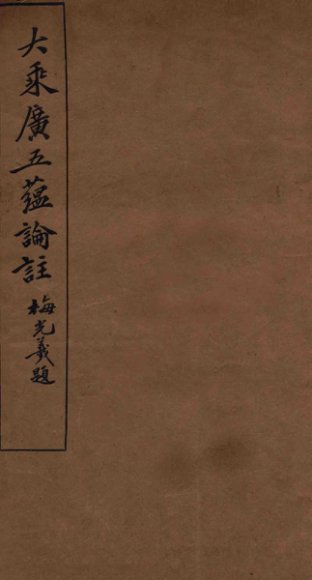 大乘廣五蘊論註
梅光羲題